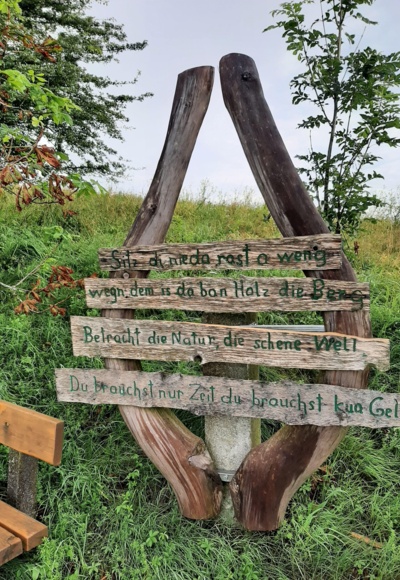 Sitz di nieda rast a weng
wegn dem is da ban Holz die Beng
Betracht die Natur, die schene Well
Du brauchst nur Zeit du brauchst kua Gel